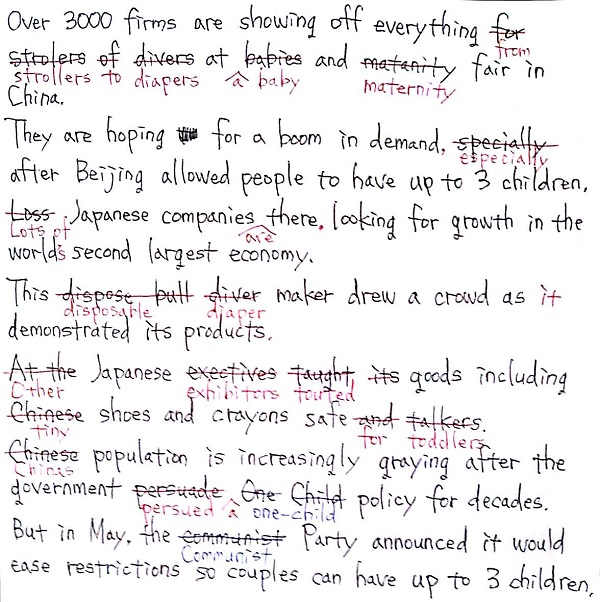 Over 3000 firms are showing off everything for
from
strolers of divers at babies and matanity fair in
strollers to diapers ^ a baby maternity
China.
They are hoping for a boom in demand, specially
especially
after Beijing allowed people to have up to 3 children.
Loss Japanese companies there. looking for growth in the
Lots of are
world's second largest economy.
This dispose pull diver maker drew a crowd as it
disposable diaper
demonstrated its products.
At the Japanese exectives taught its goods including
Other exhibitors touted
Chinese shoes and crayons safe and talkers.
tiny for toddlers
Chinese population is increasingly graying after the
Chinas
government persuade One Child policy for decades.
persued a one-child
But in May, the communist Party announced it would
Communist
ease restrictions so couples can have up to 3 children.